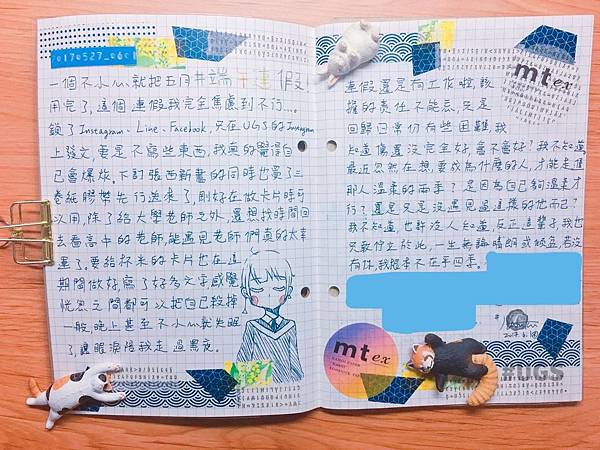 20170527_0601
一個不小心就把五月#端午連假
用完了,這個連假我完全焦慮到不行...。
鎖了Instagram、Line、Facebook,只在UGS的Instagram
上發文,要是不寫些東西,我真的覺得自
己會爆炸,下訂張西新書的同時也買了三
卷紙膠帶先行送來了,剛好在做卡片時可
以用,除了給大學老師之外,還想找時間回
去看高中的老師,能遇見老師們真的太幸
運了,要給林米的卡片也在這
期間做好,寫了好多文字感覺
恍忽之間都可以把自己殺掉
一般,晚上甚至不小心就失眠
了,讓眼淚陪我走過黑夜。
mt ex
連假還是有工作啦,該
擔的責任不能忘,只是
回歸日常仍有些困難,我
知道傷置沒完全好,會不會好?我不知道,
最近忽然在想,要成為什麼的人,才能走進
那人溫柔的兩手?是因為自己夠溫柔才
行?還是只是沒遇見過這樣的他而已?
我不知道,也許沒人知道,反正這輩子,我也
只敢佇立於此,一生無論晴朗或傾盆,若沒
有你,我根本不在乎四季。
mt ex
#UGS